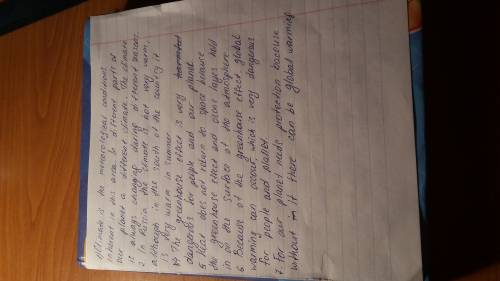 1 Climate is the meteorological conditions
inherent in this area. In different parts of
our planet a different climate. The climate
is always changing during different seasons.
2. In Russia the climate is not very warm,
although in the south of the country it
is very warm in summer
4 The greenhouse effect is very
dangerous for people and our planet
5 Heat does not return to space because
the greenhouse effect and ozone layer hold
in of the surface of the atmosphere
6 Because of the greenhouse effect, global
warming can occour which is very dangerous
for people and planet
7. For our planet needs protection because
without it there can be global warming